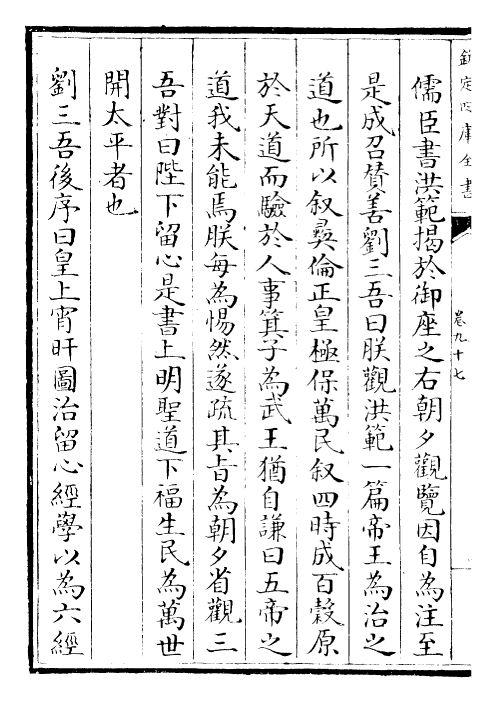 欽定四庫全書
卷九十七
儒臣書洪範揭於御座之右朝夕觀覽因自為注至
是成召贊善劉三吾曰朕觀洪範一篇帝王為治之
道也所以叙彛倫正皇極保萬民叙四時成百穀原
於天道而驗於人事箕子為武王猶自謙曰五帝之
道我未能焉朕每為惕然遂疏其旨為朝夕省觀三
吾對曰陛下留心是書上明聖道下福生民為萬世
開太平者也
劉三吾後序曰皇上宵旰圖治留心經學以為六經